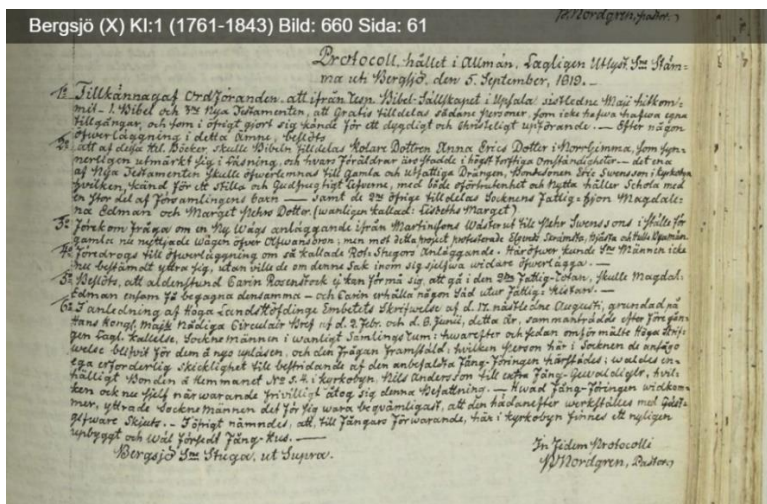 Bergsjö (X) KI:1 (1761-1843) Bild: 660 Sida: 61
Nordgren, Pastor.
Protocoll, hållet i Allmän, Lagligen Utlyst, Sne Stäm=
ma uti Bergsjö, den 5. September, 1819. –
1o Tillkännagaf Ordföranden, att ifrån Resp. Bibel-Sällskapet i Upsala sistledne Majii hitkom=
mit - 1. Bibel och 3ne Nya Testamenten, att Gratis tilldelas sådane personer, som icke hafwa egna
tillgångar, och som i öfrigt gjort sig kände för ett dygdigt och Christeligt upförande. — Efter någon
öfwerläggning i detta ämne, beslöts
2o att af dessa Hel. Böcker, skulle Bibeln tilldelas Kolare Dottren Anna Erics Dotter i Norrgimma, som syn=
nerligen utmärkt sig i Läsning, och hvars Föräldrar äro stadde i högst torftiga Omständigheter. — det ena
af Nya Testamenten skulle öfwerlemnas till Gamla och utfattiga Drängen, Bondsonen Eric Swensson i Kyrkobyn
hvilken, känd för ett stilla och Gudfrugtigt lefverne, med både oförtrutenhet och Nytta håller Schola med
en stor del af Församlingens barn — samt de 2ne öfrige tilldelas Socknens Fattig-hjon Magdale=
na Edman och Marget Pehrs Dotter (wanligen kallad: Lisbeths Marget)
3o Förekom Fråga om en Ny Wägs anläggande ifrån Martinsons Wäster ut till Pehr Swenssons i Stället för
gamla nu nyttjade Wägen öfver men mot detta project protesterade
4o Föredrogs till öfwerläggning om så kallade Rot-Stugors Anläggande. Häröfwer kunde Sne Männen icke
nu bestämdt yttra sig, utan wille de om denne Sak inom sig sjelfwa widare öfwerlägga. —
5o Beslöts, att aldenstund Carin Rosenstock ej kan förmå sig, att gå i den 2dra Fattig-Rotan, skulle Magdal.
Edman ensam få begagna densamma — och Carin erhålla någon Säd utur Fattig-Kistan. —
6o I anledning af Höga Landshöfdinge Embetets Skrifwelse af d. 17. nästledne Augusti, grundad på
Hans Kongl. Majts Nådiga Circulair Bref af d. 2. Febr. och d. 8. Junii, detta år, sammanträdde efter föregån=
gen Lagl. kallelse, Sockne männen i wanligt Samlings rum: hwarefter och sedan omförmälte Höga Skrif=
welse blifvit för dem å nyo upläsen, och den Frågan framstäld: hvilken Person här i Socknen de ansågo
ega erforderlig skicklighet till bestridande af den anbefalda Fång-föringen härstädes; waldes en=
hälligt Bonden å Hemmanet No 3. 4. i Kyrkobyn, Nils Andersson till extra Fång-Gewaldiger, hvil=
ken ock nu sjelf närwarande frivilligt åtog sig denna Befattning. — Hwad Fång-föringen widkom=
mer, yttrade Sockne Männen det för sig wara beqvämligast, att den hädanefter werkställes med Gäst=
gifware Skjuts. — I öfrigt nämndes, att, till Fångars Förwarande, här i Kyrkobyn finnes ett nyligen
upbyggt och Wäl försedt Fång-Hus. —
Bergsjö Sne Stuga, ut Supra.
In fidem Protocolli
Nordgren, Pastor.